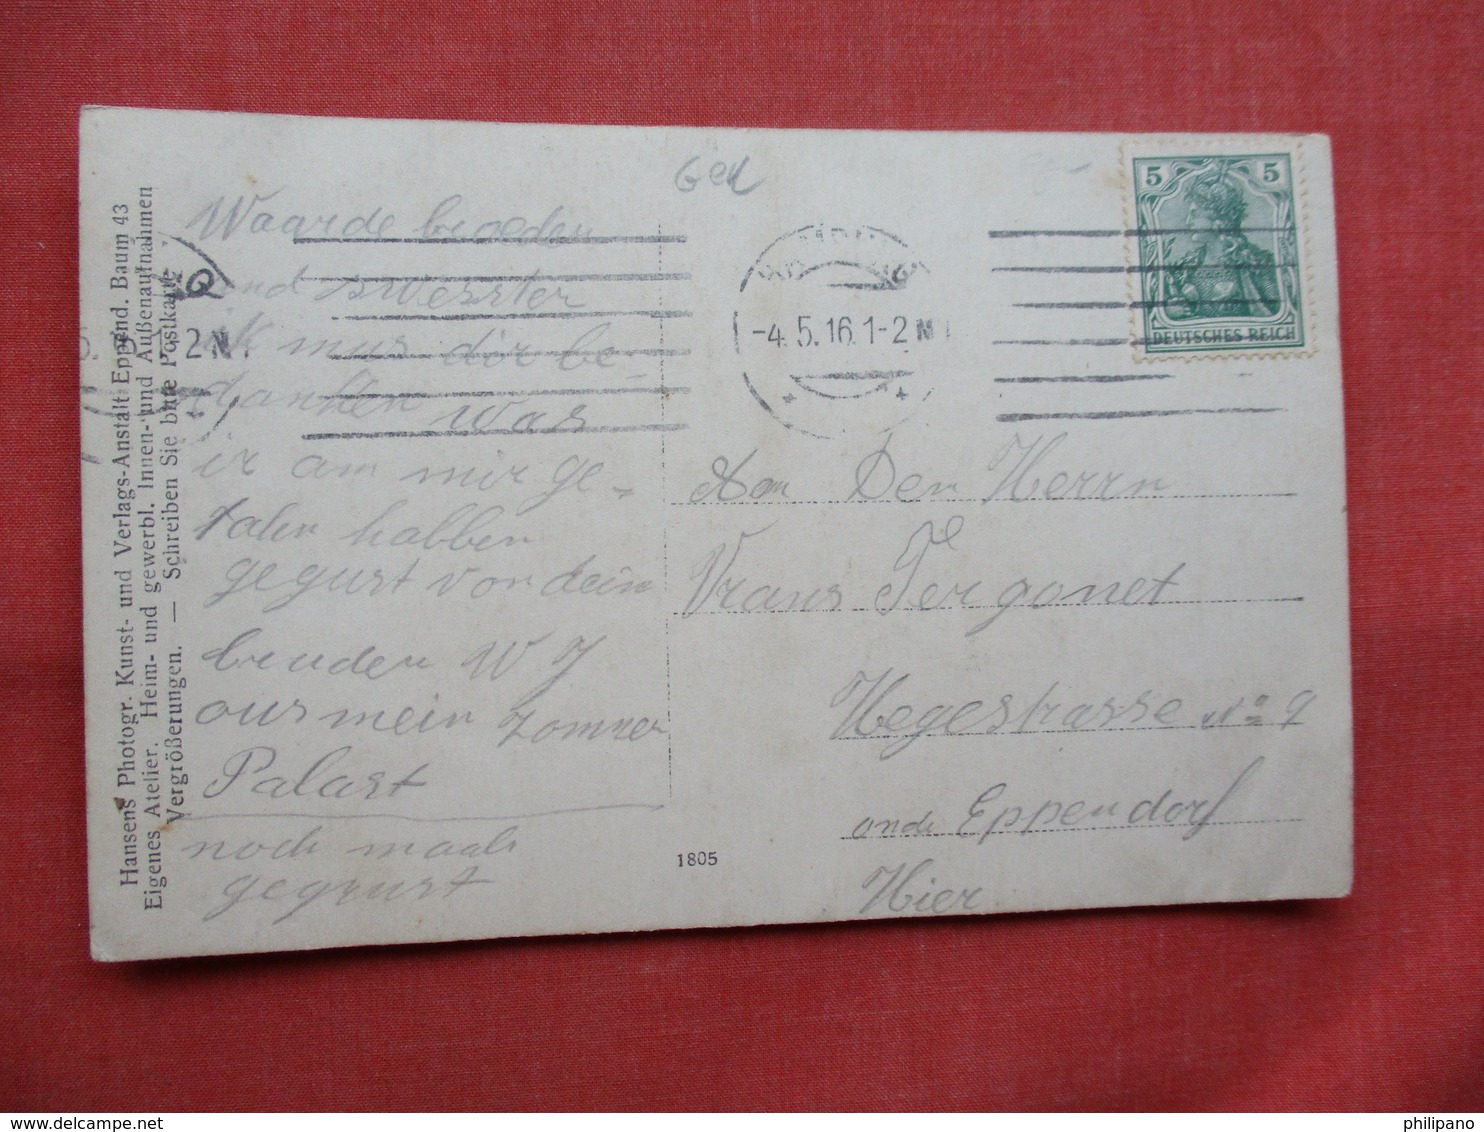 Hansens Photogr. Kunst- und Verlags-Anstalt Eppend. Baum 43
Eigenes Atelier. Heim- und gewerbl. Innen- und Außenaufnahmen
Vergrößerungen. — Schreiben Sie bitte Postkarte
Waarde broeder
und swesster
ik mus dir be-
danken was
ir am mir ge-
tahn habben
gegurst von dein
bruder W J
aus mein zommer
Palast
noch maals
gegrurst
1805
HAMBURG
-4.5.16.1-2N
5 5
DEUTSCHES REICH
An Den Herrn
Vrans Tergonet
Hegestrasse No 9
Eppendorf
Hier
philipano